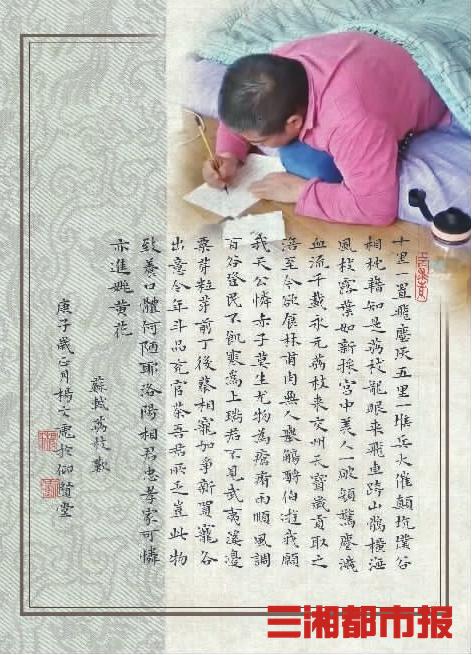 十里一置飛塵灰五里一堠兵火催顛坑墣谷
相枕藉知是荔枝龍眼來飛車跨山鶻橫海
風枝露葉如新採宮中美人一破顏驚塵濺
血流千載永元荔枝來交州天寶歲貢取之
涪至今欲食林甫肉無人舉觴酹伯游我願
我天公憐赤子莫生尤物為瘡痏雨順風調
百谷登民不飢寒為上瑞君不見武夷溪邊
粟芽粒芽前丁後蔡相寵加爭新買寵各
出意今年斗品充官茶吾君所乏豈此物
致養口體何陋耶洛陽相君忠孝家可憐
亦進姚黃花
蘇軾荔枝歎
庚子歲正月楊文於仰賢堂
三湘都市报